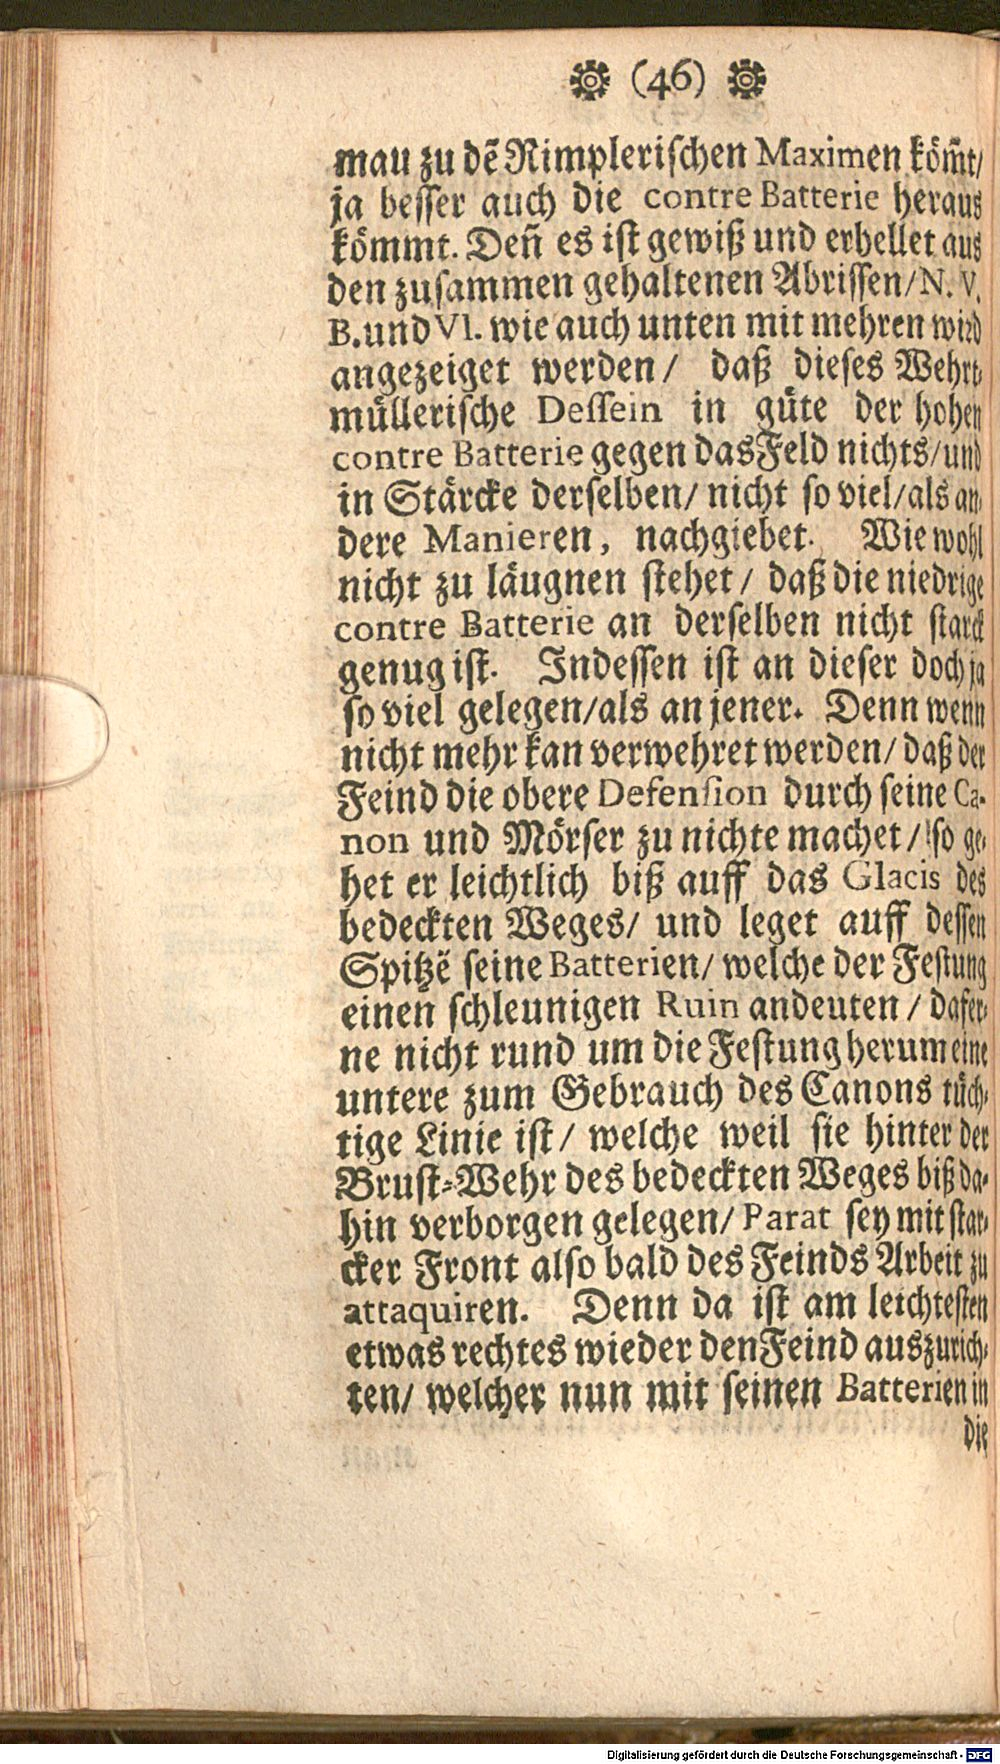 (46)
mau zu dẽ Rimplerischen Maximen köm̃t/
ja besser auch die contre Batterie heraus
kömmt. Deñ es ist gewiß und erhellet aus
den zusammen gehaltenen Abrissen/N. V.
B. und VI. wie auch unten mit mehren wird
angezeiget werden/ daß dieses Wehrt-
müllerische Dessein in güte der hohen
contre Batterie gegen das Feld nichts/und
in Stärcke derselben/ nicht so viel/als an-
dere Manieren, nachgiebet. Wie wohl
nicht zu läugnen stehet/ daß die niedrige
contre Batterie an derselben nicht starck
genug ist. Indessen ist an dieser doch ja
so viel gelegen/als an jener. Denn wenn
nicht mehr kan verwehret werden/ daß der
Feind die obere Defension durch seine Ca-
non und Mörser zu nichte machet/ so ge-
het er leichtlich biß auff das Glacis des
bedeckten Weges/ und leget auff dessen
Spitzẽ seine Batterien/ welche der Festung
einen schleunigen Ruin andeuten/ dafer-
ne nicht rund um die Festung herum eine
untere zum Gebrauch des Canons tüch-
tige Linie ist/ welche weil sie hinter der
Brust-Wehr des bedeckten Weges biß da-
hin verborgen gelegen/ Parat sey mit star-
cker Front also bald des Feinds Arbeit zu
attaquiren. Denn da ist am leichtesten
etwas rechtes wieder den Feind auszurich-
ten/ welcher nun mit seinen Batterien in
die
Digitalisierung gefördert durch die Deutsche Forschungsgemeinschaft - DFG